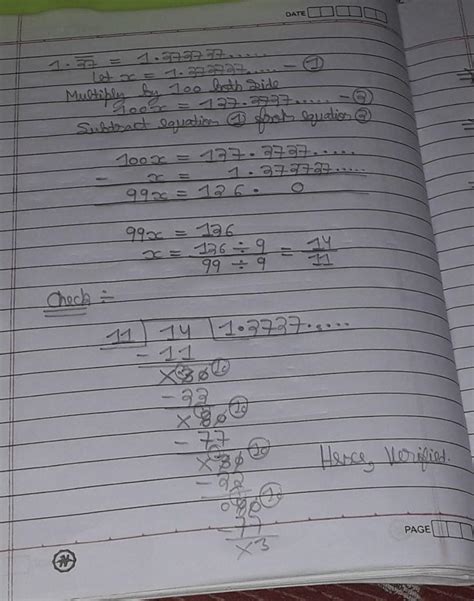 DATE
1.2̅7̅ = 1.272727.....
Let x = 1.272727..... - ①
Multiply by 100 both side
100x = 127.2727..... - ②
Subtract equation ① from equation ②
100x = 127.2727.....
- x = 1.272727.....
99x = 126. 0
99x = 126
x = 126 ÷ 9 / 99 ÷ 9 = 14 / 11
Check ÷
11 | 14 | 1.2727.....
- 11
x 30 10
- 22
x 80 10
- 77
x 30 10
- 22
0 80 10
- 77
x 3
Hence, Verified.
PAGE